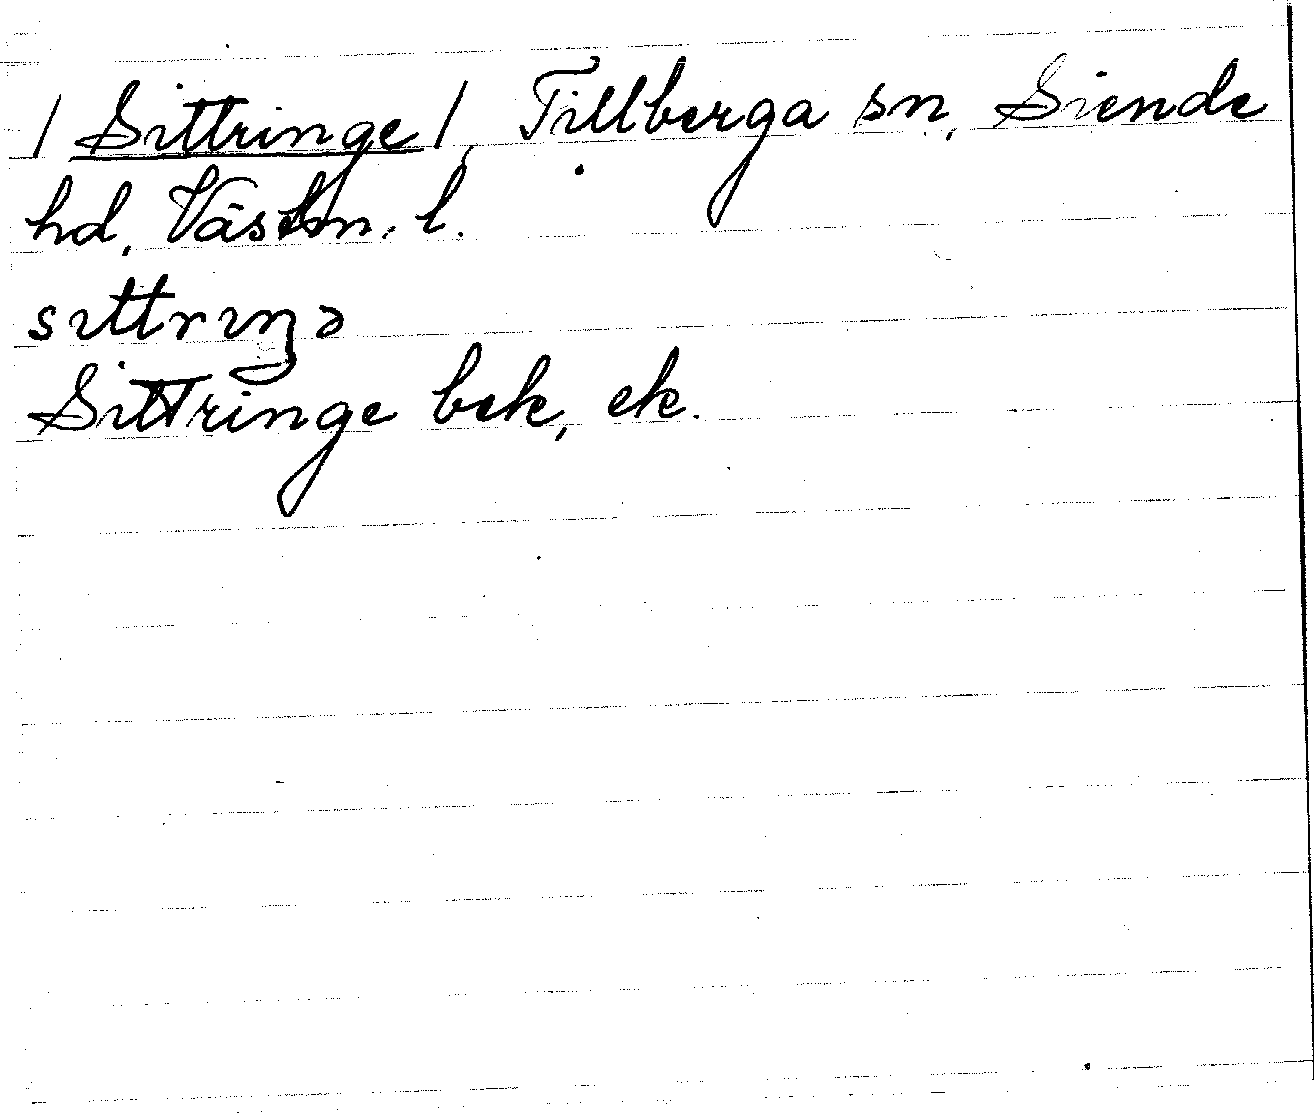 / Sittringe /, Tillberga sn, Siende
hd, Västm. l.
sıttrıŋə
Sittringe bek, ek.